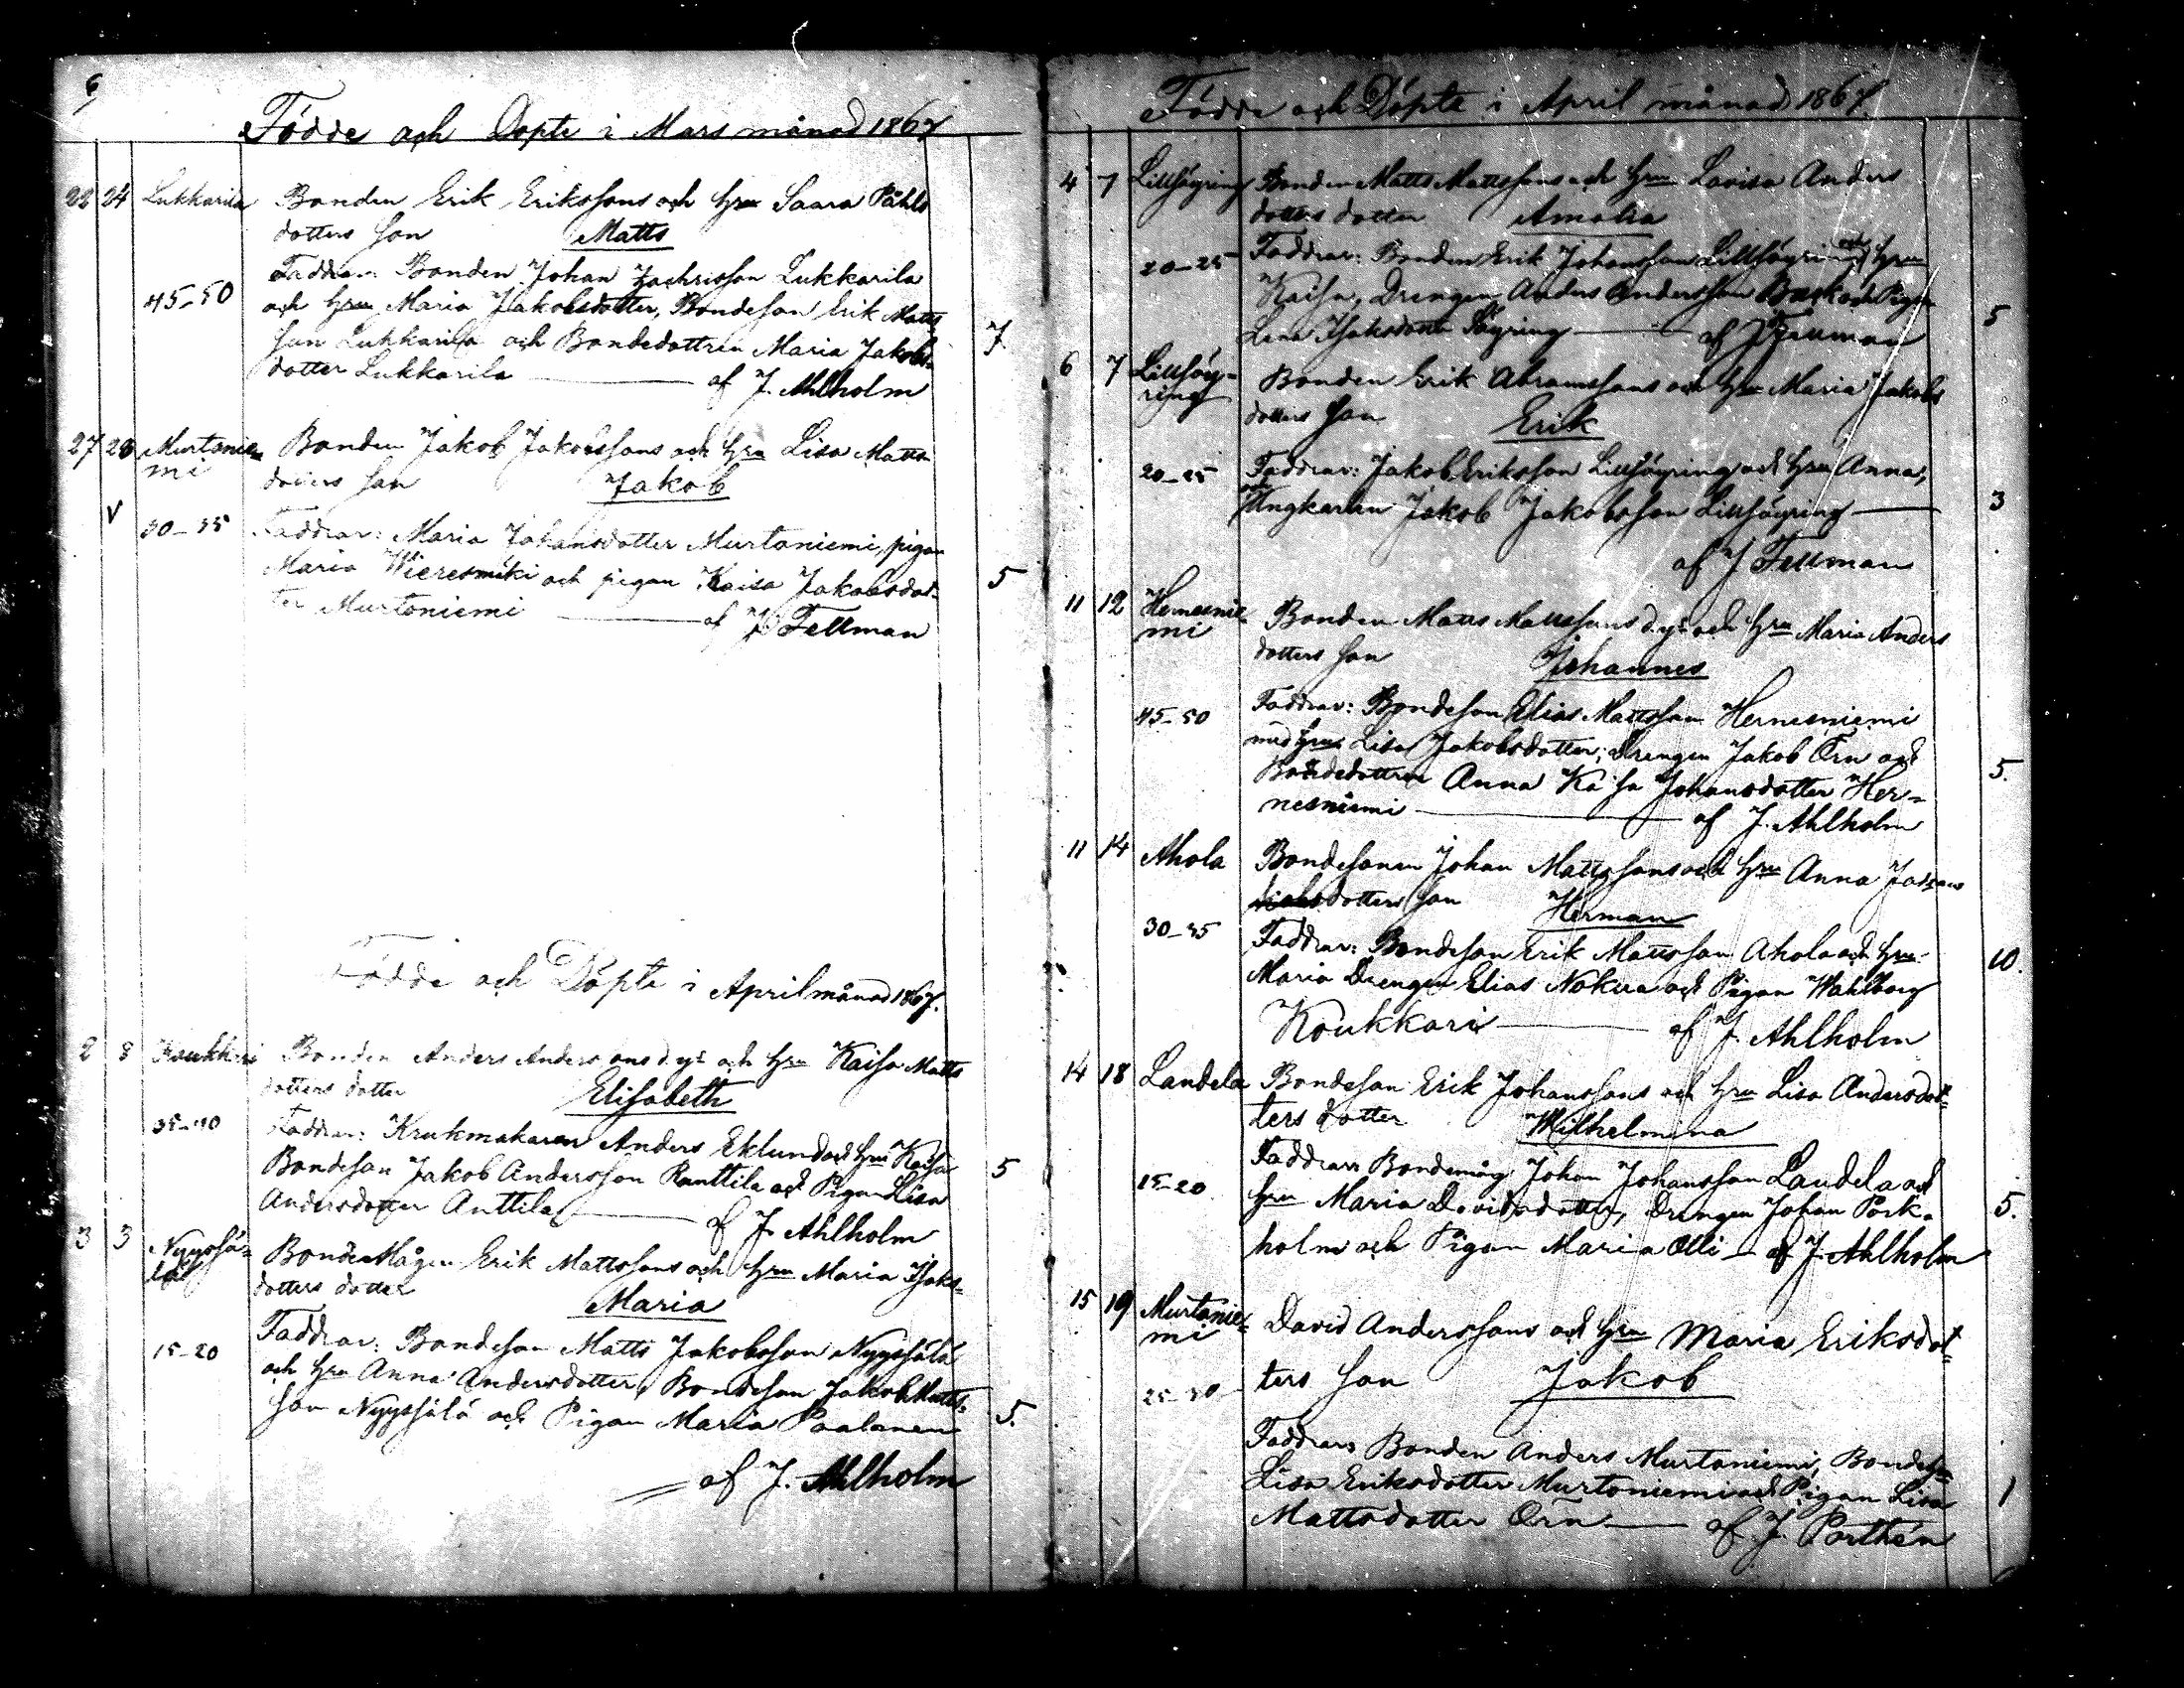 6
Födde och Döpte i Mars månad 1867
22 24 Lukkarila Bonden Erik Erikssons och hru Saara Påhls
dotters son Matts
Faddrar: Bonden Johan Zachrisson Lukkarila
45-50 och hru Maria Jakobsdotter, Bondeson Erik Matts
son Lukkarila och Bondedottren Maria Jakobs- 7.
dotter Lukkarila af J. Ahlholm
27 28 Murtonie- Bonden Jakob Jakobssons och hru Lisa Matts
mi dotters son Jakob
V 30-35 Faddrar: Maria Johansdotter Murtoniemi, pigan
Maria Wieresmäki och pigan Kaisa Jakobsdot- 5
ter Murtoniemi af J Fellman
Födde och Döpte i April månad 1867.
2 3 Koukkari Bonden Anders Anderssons d.y:s och hru Kaisa Matts
dotters dotter Elisabeth
35-40 Faddrar: Krukmakaren Anders Eklund och hru Kaisa
Bondeson Jakob Andersson Ranttila och Pigan Lisa 5
Andersdotter Anttila af J. Ahlholm
3 3 Nyyssö- Bondemågen Erik Mattssons och hru Maria Isaks-
lä dotters dotter Maria
15-20 Faddrar: Bondeson Matts Jakobsson Nyyssölä
och hru Anna Andersdotter, Bondeson Jakob Matts-
son Nyyssölä och Pigan Maria Paalanen 5.
af J. Ahlholm
Födde och Döpte i April månad 1867.
4 7 Lillsöyring Bonden Matts Mattssons och hru Lovisa Anders
dotters dotter Amalia
20-25 Faddrar: Bonden Erik Johansson Lillsöyring och hru
Kaisa, Drengen Anders Andersson Back och Pigan
Lena Isaksdotter Söyring af J Fellman 5
6 7 Lillsöy- Bonden Erik Abramssons och hru Maria Jakobs
ring dotters son Erik
20-25 Faddrar: Jakob Eriksson Lillsöyring och hru Anna,
och Ungkarlen Jakob Jakobsson Lillsöyring 3
af J Fellman
11 12 Hernesnie- Bonden Matts Mattssons d.y:s och hru Maria Anders
mi dotters son Johannes
45-50 Faddrar: Bondeson Elias Mattsson Hernesniemi
med hru Lisa Jakobsdotter; Drengen Jakob Örn och 5.
Bondedottren Anna Kaisa Johansdotter Her-
nesniemi af J. Ahlholm
11 14 Ahola Bondesonen Johan Mattssons och hru Anna
dotters son Herman
30-35 Faddrar: Bondeson Erik Mattsson Ahola och hru 10.
Maria Drengen Elias Nokua och Pigan Wahlborg
Koukkari af J. Ahlholm
14 18 Landela Bondeson Erik Johanssons och hru Lisa Andersdot-
ters dotter Wilhelmina
15-20 Faddrar: Bondemåg Johan Johansson Landela och
hru Maria Davidsdotter, Drengen Johan Pork- 5.
holm och Pigan Maria Olli af J. Ahlholm
15 19 Murtonie- David Anderssons och hru Maria Eriksdot-
mi ters son Jakob
25-30
Faddrar: Bonden Anders Murtoniemi,
Lisa Eriksdotter Murtoniemi och Pigan Lisa 1
Mattsdotter Örn af J. Porthén